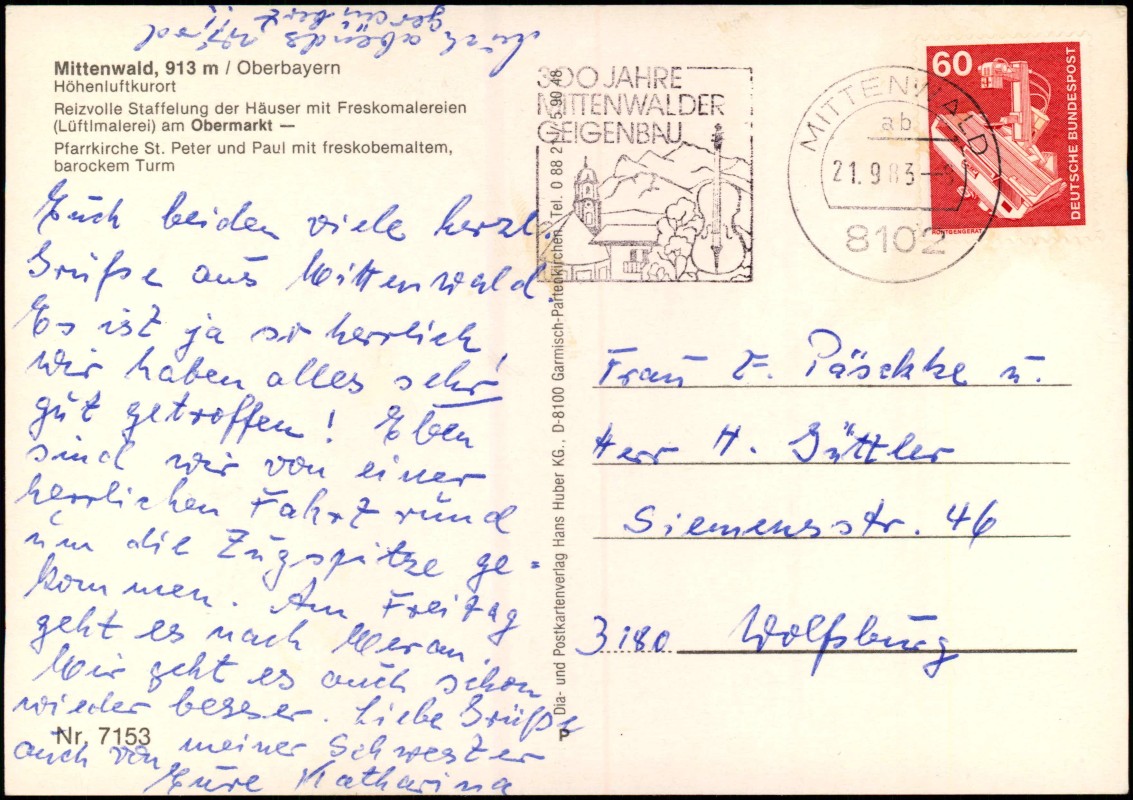 Mittenwald, 913 m / Oberbayern
Höhenluftkurort
Reizvolle Staffelung der Häuser mit Freskomalereien
(Lüftlmalerei) am Obermarkt —
Pfarrkirche St. Peter und Paul mit freskobemaltem,
barockem Turm
Euch beiden viele herzl.
Grüße aus Mittenwald.
Es ist ja so herrlich!
Wir haben alles sehr
gut getroffen! Eben
sind wir von einer
herrlichen Fahrt rund
um die Zugspitze ge=
kommen. Am Freitag
geht es nach Meran.
Mir geht es auch schon
wieder besser. Liebe Grüße
auch von meiner Schwester
Eure Katharina
abends
Nr. 7153
P Dia- und Postkartenverlag Hans Huber KG., D-8100 Garmisch-Partenkirchen, Tel. 0 88 21 / 5 90 48
300 JAHRE
MITTENWALDER
GEIGENBAU
MITTENWALD
ab
21.9.83
8102
60
DEUTSCHE BUNDESPOST
RÖNTGENGERÄT
Frau E. Päschke u.
Herr H. Güttler
Siemensstr. 46
3180 Wolfsburg